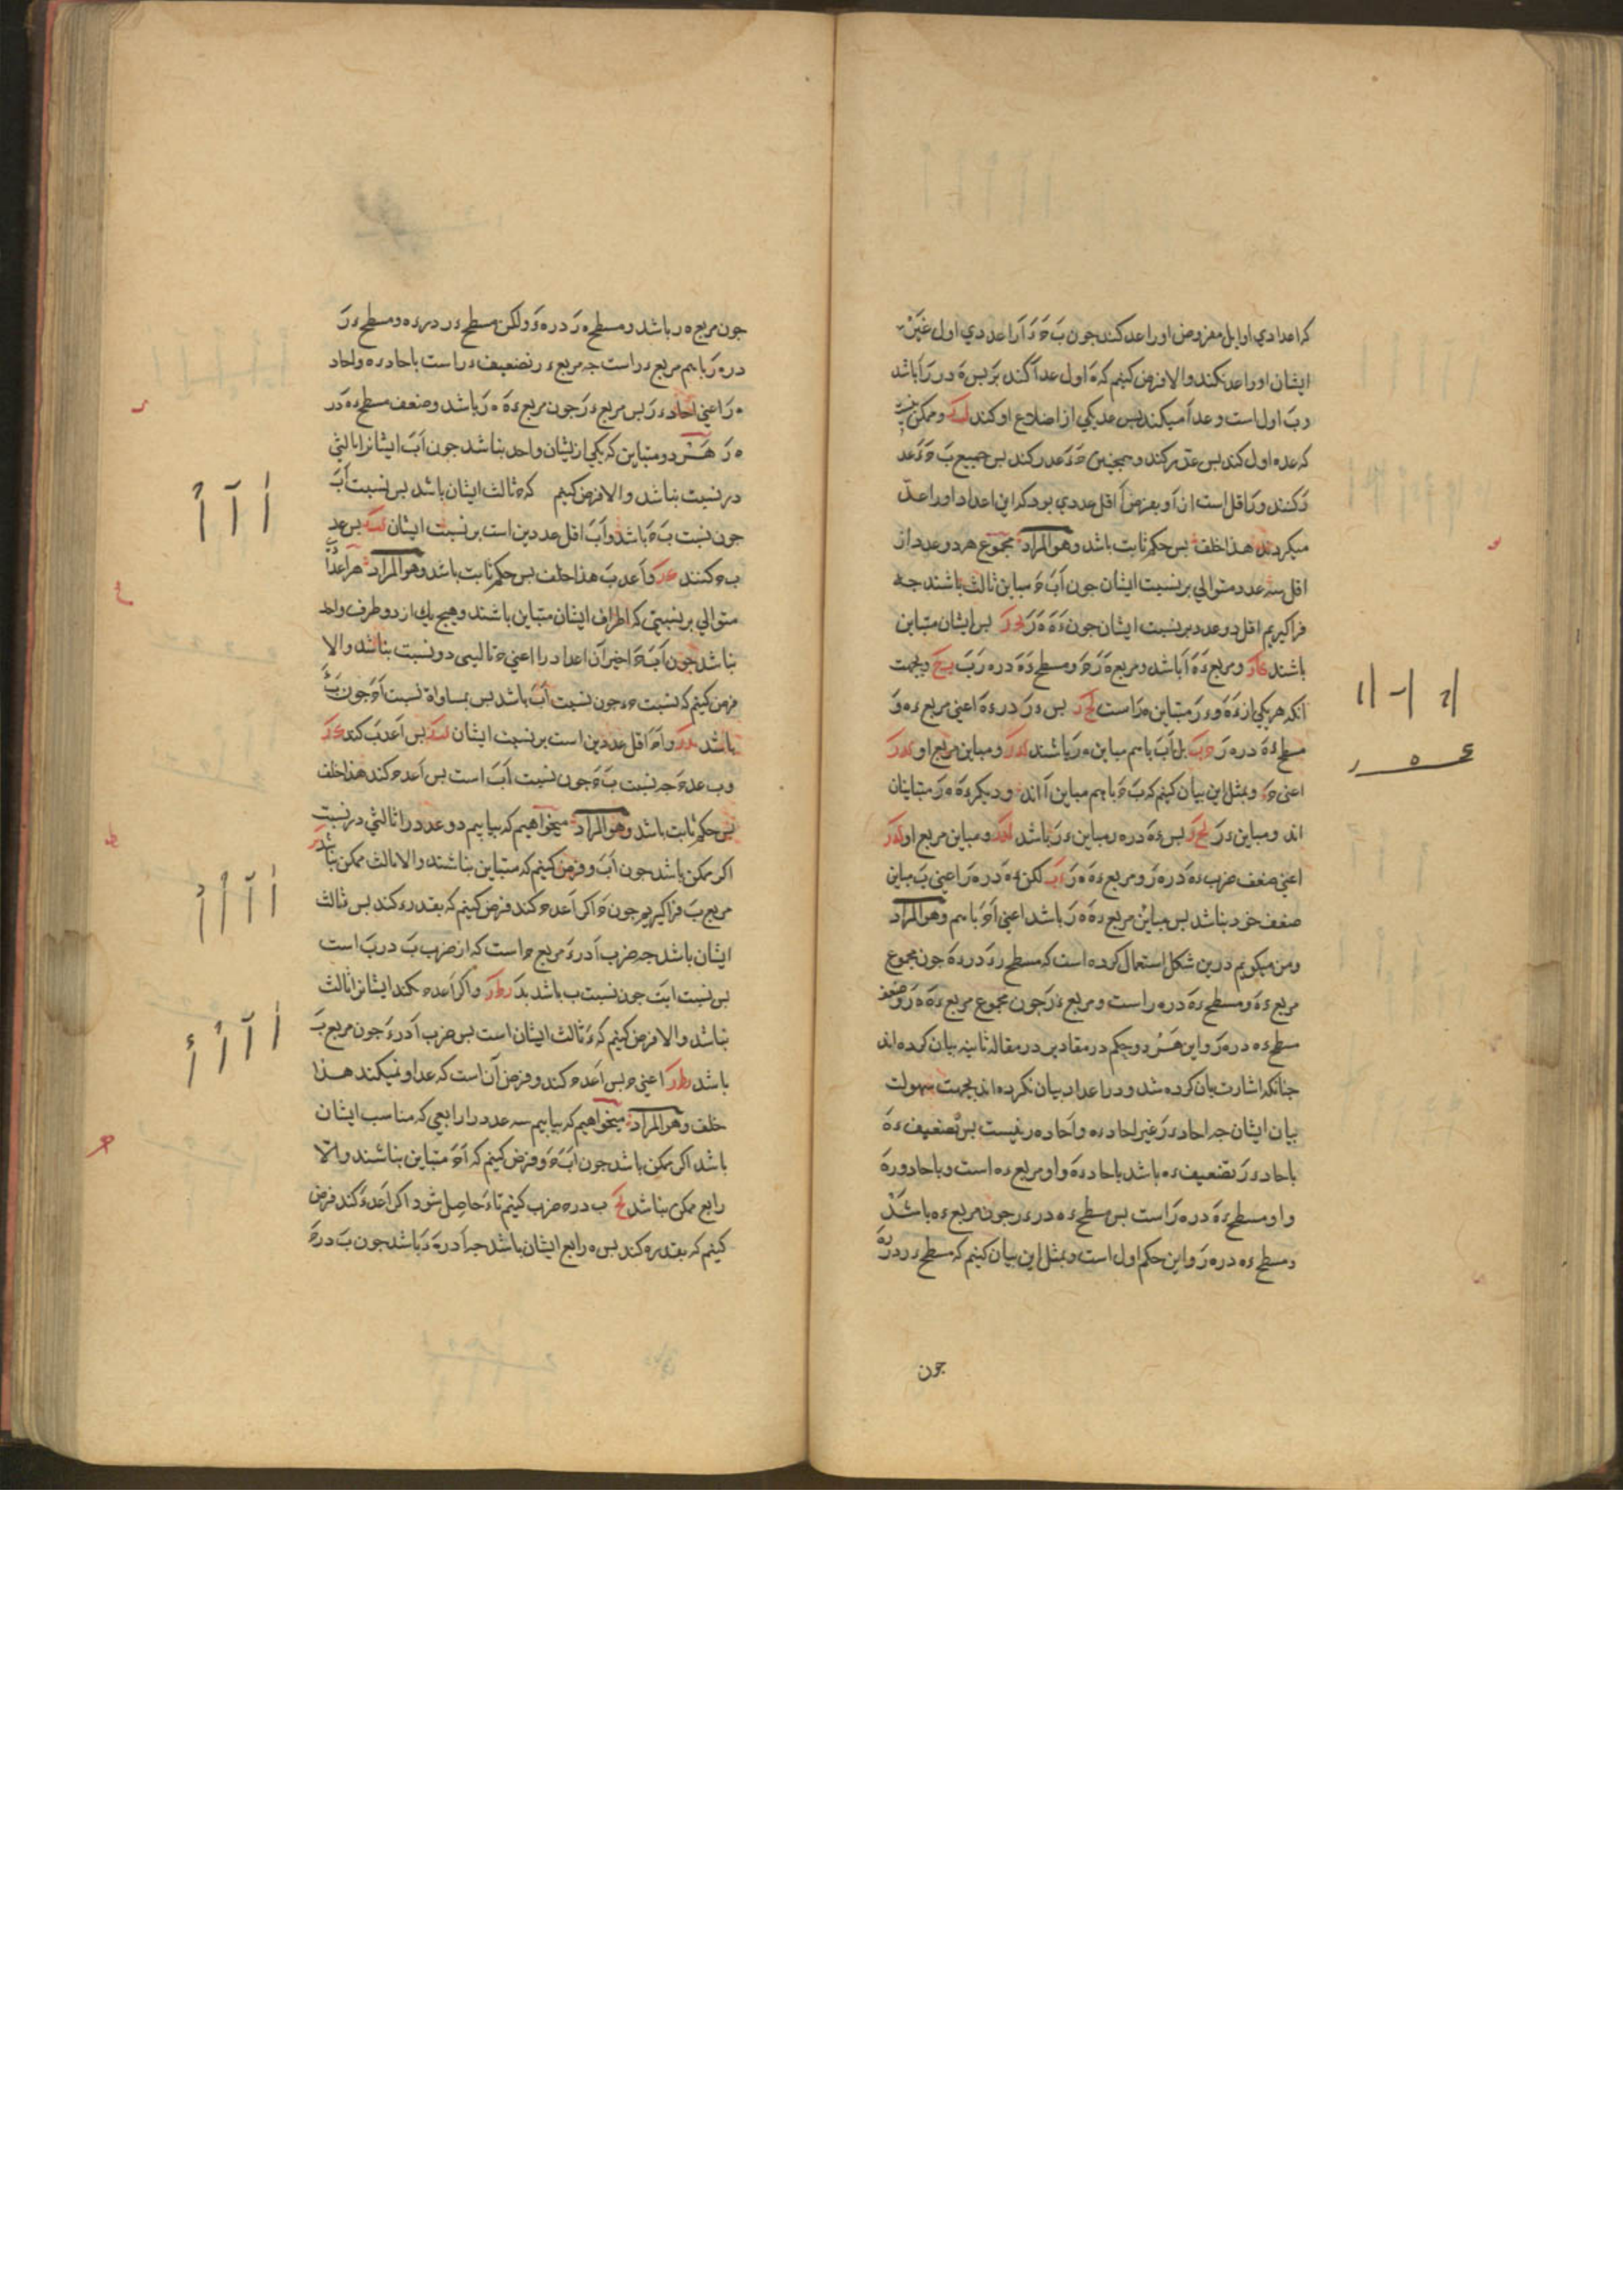 که اعدادی اوایل مفروض او را عد کنند چون بَ حَ دَ آ را عددی اول غیر
ایشان او را عد نکند والا فرض کنیم که هَ اول عد آ کند بزَ پس هَ در زَ آ باشد
و بَ اول است و عد آ میکند پس عد یکی از اضلاع او کند لب و ممکن نیست
که عد ه اول کند پس عد ز کند و همچنین حَ دَ عد ز کند پس جمیع بَ حَ دَ عد
زَ کنند و زَ اقل است از آ و بفرض آ اقل عددی بود که این اعداد او را عد
میکردند هذا خلف پس حکم ثابت باشد وهو المراد مجموع هر دو عدد از
اقل سه عدد متوالی بر نسبت ایشان چون آ بَ حَ مباین ثالث باشند چه
فرا کیریم اقل دو عدد بر نسبت ایشان چون دَهَ هَزَ پس ایشان متباین
باشند و مربع دَهَ آ باشد و مربع هَزَ حَ و مسطح دَهَ در ه زَ بَ و بجهت
آنکه هر یکی از دَهَ و د زَ متباین ه زَ است پس د زَ در د هَ اعنی مربع د ه و
مسطح د هَ در ه زَ بل آ بَ با هم مباین ه زَ باشند و مباین مربع او
اعنی حَ و بمثل این بیان کنیم که بَ حَ با هم مباین آ اند و دیکر دَهَ ه زَ متباینان
اند و مباین د زَ پس دَهَ در ه ز مباین د زَ باشد و مباین مربع او
اعنی ضعف ضرب د هَ در ه زَ و مربع دَهَ ه زَ لکن دهَ در ه زَ اعنی بَ مباین
ضعف خود بناشد پس مباین مربع دَهَ ه زَ باشد اعنی آ حَ با هم وهو المراد
ومن میکویم درین شکل استعمال کرده است که مسطح زدَ در دهَ چون مجموع
مربع دهَ و مسطح دهَ در ه ز است و مربع د زَ چون مجموع مربع دَهَ ه زَ و ضعف
مسطح د ه در ه زَ و این هر دو حکم در مقادیر در مقاله ثانیه بیان کرده اند
چنانکه اشارت بان کرده شد و در اعداد بیان نکرده اند بجهت سهولت
بیان ایشان چه احاد د زَ غیر احاد د ه و آحاد ه ز نیست پس تضعیف د هَ
باحاد د زَ تضعیف د ه باشد باحاد د هَ و او مربع د ه است و باحاد ه زَ
و او مسطح د هَ در ه زَ است پس مسطح د ه در د ز چون مربع د ه باشد
و مسطح د ه در ه زَ و این حکم اول است و بمثل این بیان کنیم که مسطح د ز در زه
چون
چون مربع ه ز باشد و مسطح ه زَ در ه دَ ولکن مسطح د ز در د ه و مسطح د زَ
در ه زَ با هم مربع د ز است چه مربع د ز تضعیف د ز است باحاد د ه و احاد
ه زَ اعنی احاد د زَ پس مربع د زَ چون مربع دَهَ ه زَ باشد و ضعف مسطح د هَ در
ه زَ هر دو متباین که یکی از یشان واحد بناشد چون آ بَ ایشانرا ثالثی
در نسبت بناشد والا فرض کنیم که حَ ثالث ایشان باشد پس نسبت آ بَ
چون نسبت بَ حَ باشد و آ بَ اقل عددین است بر نسبت ایشان پس عد
ب ح کنند و آ عد بَ هذا خلف پس حکم ثابت باشد وهو المراد هر اعداد
متوالی بر نسبتی که اطراف ایشان متباین باشند و هیچ یک از دو طرف واحد
بناشد چون آ بَ حَ اخیر آن اعداد را اعنی حَ تالیی در نسبت بناشد والا
فرض کنیم که نسبت ح د چون نسبت آ بَ باشد پس بمساواة نسبت آ حَ چون بَ دَ
باشد و آ حَ اقل عددین است بر نسبت ایشان پس آ عد بَ کند
و ب عد حَ چه نسبت بَ حَ چون نسبت آ بَ است پس آ عد ح کند هذا خلف
پس حکم ثابت باشد وهو المراد میخواهیم که بیابیم دو عدد را ثالثی در نسبت
اکر ممکن باشد چون آ بَ و فرض کنیم که متباین بناشند والا ثالث ممکن بناشد
مربع بَ فرا کیریم چون حَ اکر آ عد ح کند فرض کنیم که بقدر د کند پس ثالث
ایشان باشد چه ضرب آ در دَ مربع ح است که از ضرب بَ در بَ است
پس نسبت ا بَ چون نسبت ب باشد بدَ و اکر آ عد ح نکند ایشانرا ثالث
بناشد والا فرض کنیم که دَ ثالث ایشان است پس ضرب آ در دَ چون مربع بَ
باشد اعنی ح پس آ عد ح کند و فرض آن است که عد او نمیکند هذا
خلف وهو المراد میخواهیم که بیابیم سه عدد را رابعی که مناسب ایشان
باشد اکر ممکن باشد چون آ بَ حَ و فرض کنیم که آ حَ متباین بناشند والا
رابع ممکن بناشد ب در ح ضرب کنیم تا دَ حاصل شود اکر آ عد دَ کند فرض
کنیم که بقدر ه کند پس ه رابع ایشان باشد چه آ در هَ دَ باشد چون بَ در حَ